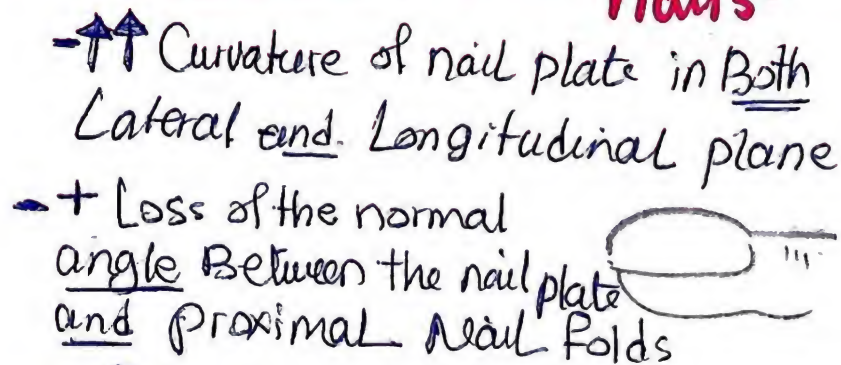 Nails
-↑↑ Curvature of nail plate in Both
Lateral and Longitudinal plane
- + Loss of the normal
angle Between the nail plate
and Proximal Nail folds